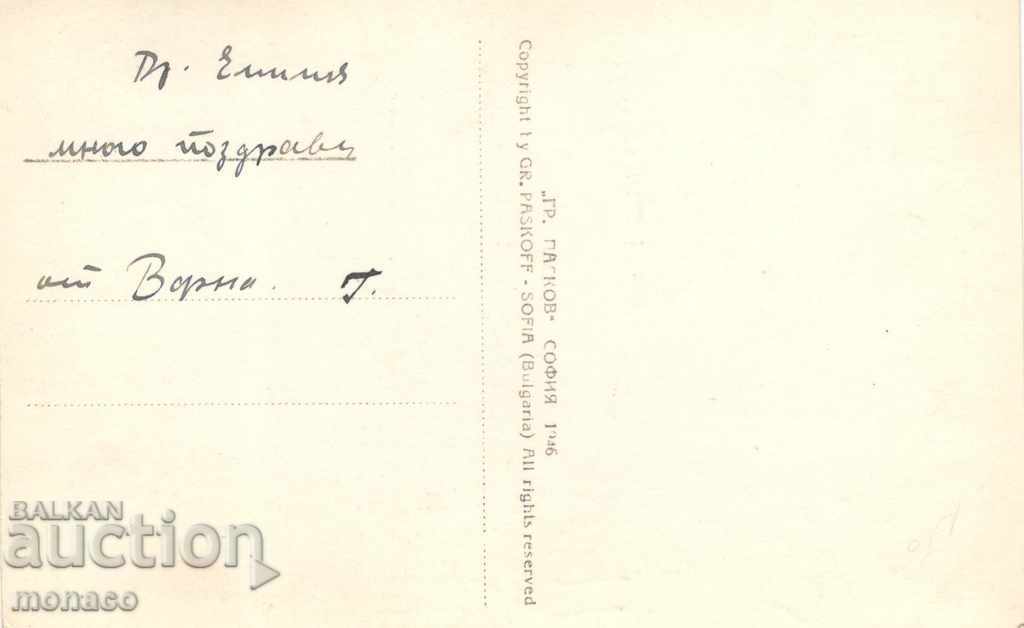 Др. Емилия
много поздрави
от Варна. Г.
„ГР. ПАСКОВ“ СОФИЯ 1946
Copyright by GR. PASKOFF - SOFIA (Bulgaria) All rights reserved
BALKAN
auction
monaco